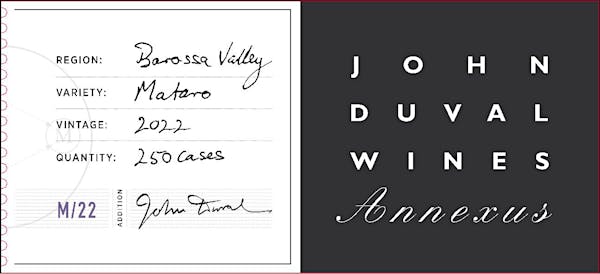 REGION: Barossa Valley
VARIETY: Mataro
VINTAGE: 2022
QUANTITY: 250 cases
M/22 ADDITION John Duval
M
JOHN
DUVAL
WINES
Annexus